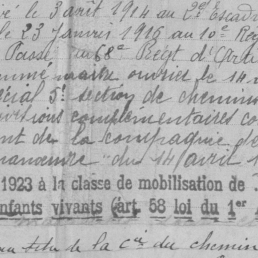 le 3 août 1914 au 2e Escad
le 23 Janvier 1915 au 10e R
Passé au 68e Régt d'Arti
nommé maître ouvrier le 14
5e section de chemin
complémentaires co
de la compagnie de
du 14 avril 1
1923 à la classe de mobilisation de
enfants vivants (art. 58 loi du 1er
au titre de la Cie du chemin